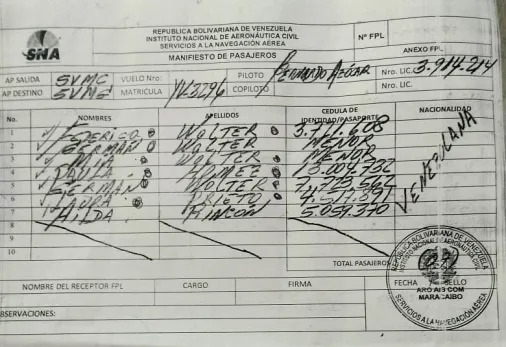 SNA
REPUBLICA BOLIVARIANA DE VENEZUELA
INSTITUTO NACIONAL DE AERONÁUTICA CIVIL
SERVICIOS A LA NAVEGACIÓN AEREA
MANIFIESTO DE PASAJEROS
Nº FPL
ANEXO FPL
AP SALIDA SVMC VUELO Nro: PILOTO Nro. LIC. 3-914-214
AP DESTINO MATRICULA YV3296 COPILOTO Nro. LIC.
No. NOMBRES APELLIDOS CEDULA DE IDENTIDAD/PASAPORTE NACIONALIDAD
1 FEDERICO WOLTER
2 GERMAN WOLTER MENOR
3 MIA WOLTER MENOR
4
5 GERMAN WOLTER
6 LAURA PRIETO
7 HILDA RINCON 5.059.370
VENEZOLANA
8
9
10
TOTAL PASAJEROS
NOMBRE DEL RECEPTOR FPL CARGO FIRMA FECHA Y SELLO
OBSERVACIONES:
REPUBLICA BOLIVARIANA DE VENEZUELA
INSTITUTO NACIONAL DE AERONAUTICA CIVIL
ARO AIS COM
MARACAIBO
SERVICIOS A LA NAVEGACIÓN AÉREA